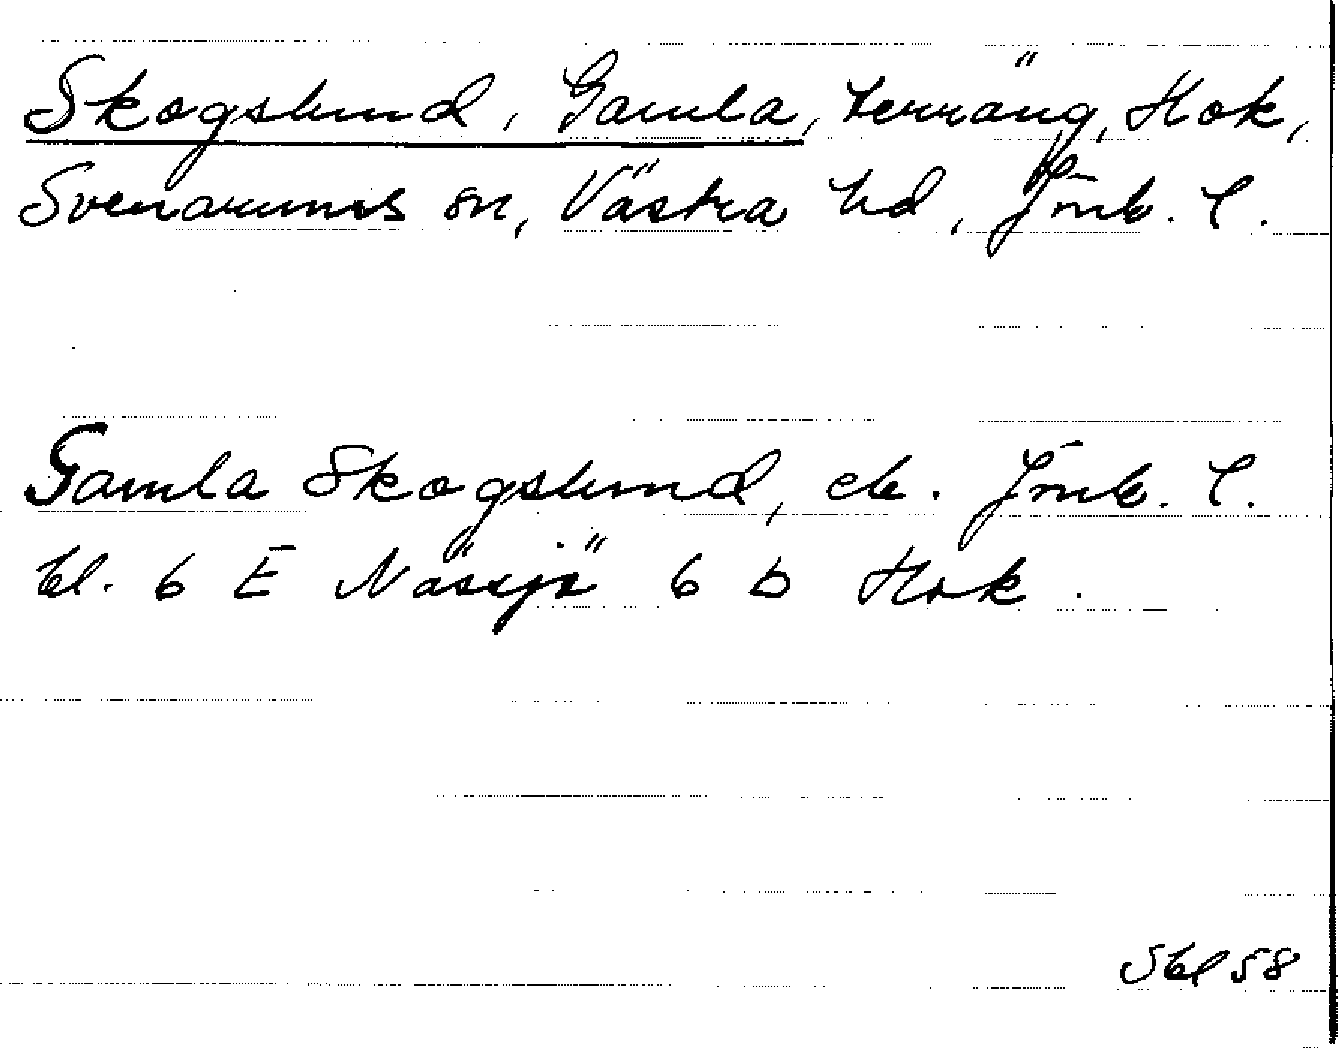 Skogslund, Gamla, terräng, Hok,
Svenarums sn, Västra hd, Jönk. l.
Gamla Skogslund, ek. Jönk. l.
bl. 6 E Nässjö 6 b Hok.
Sbl 58